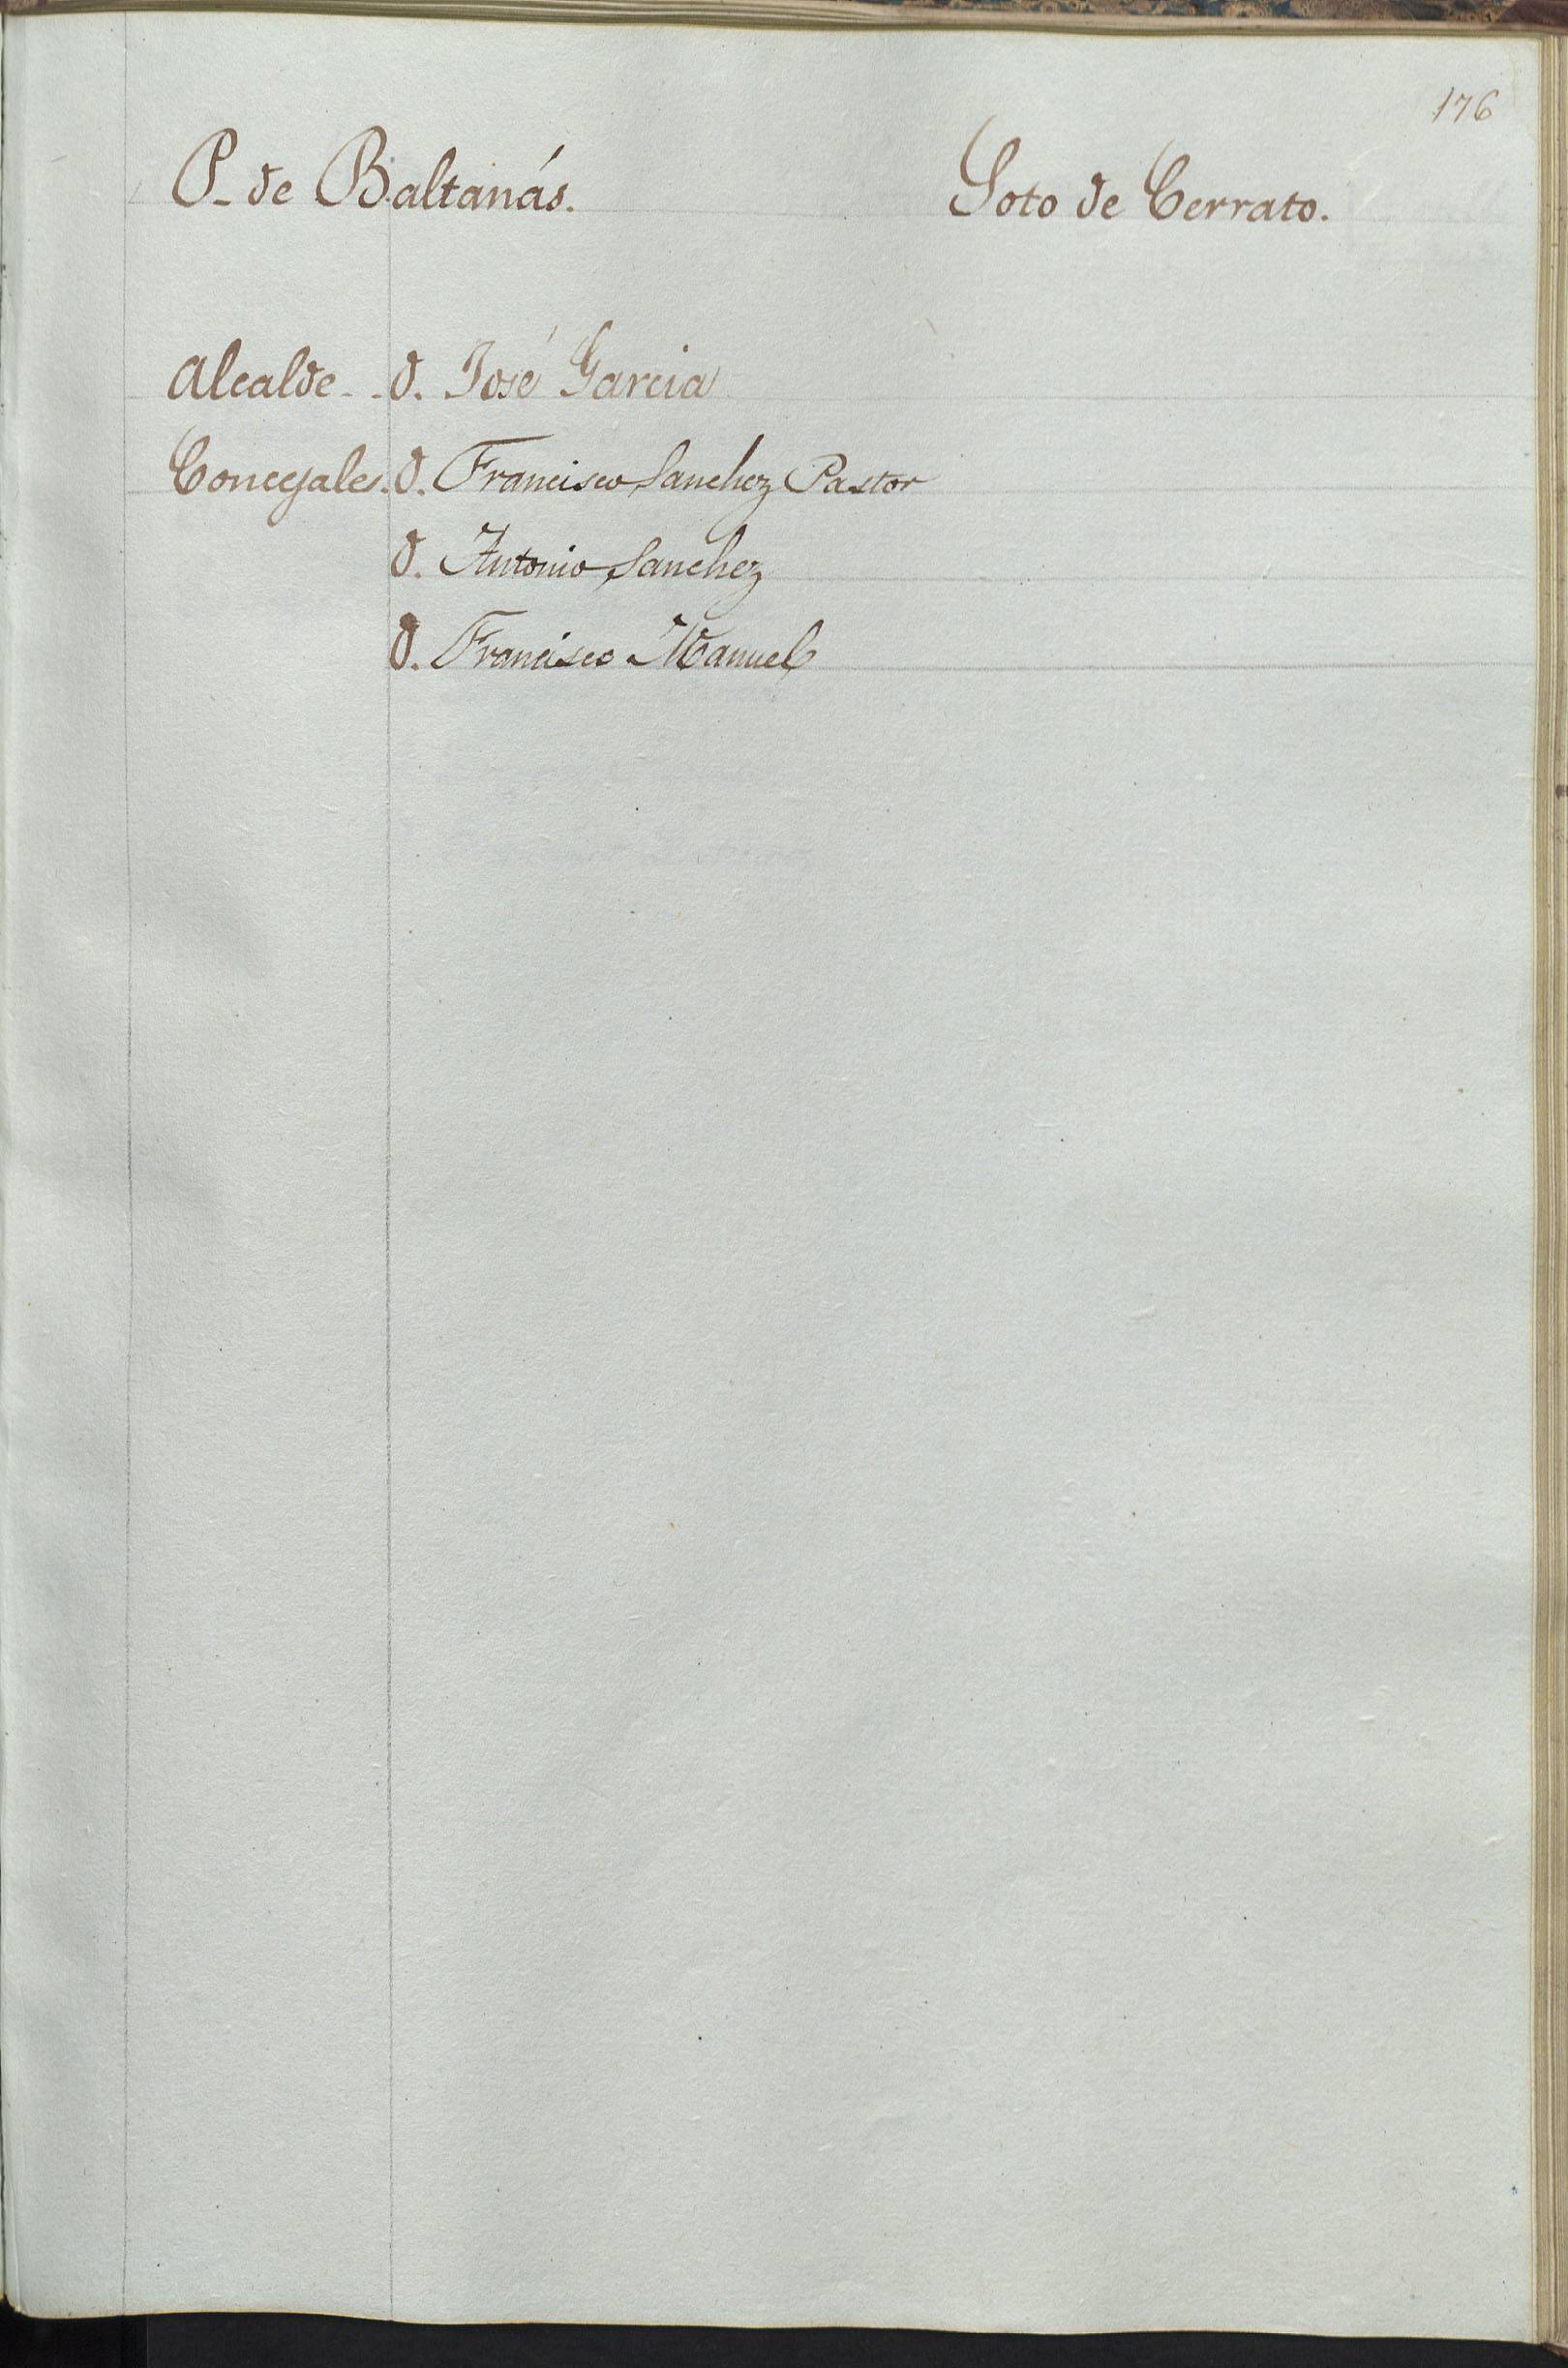 176
P. de Baltanás. Soto de Cerrato.
Alcalde - - D. José Garcia
Concejales. D. Francisco Sanchez Pastor
D. Antonio Sanchez
D. Francisco Manuel